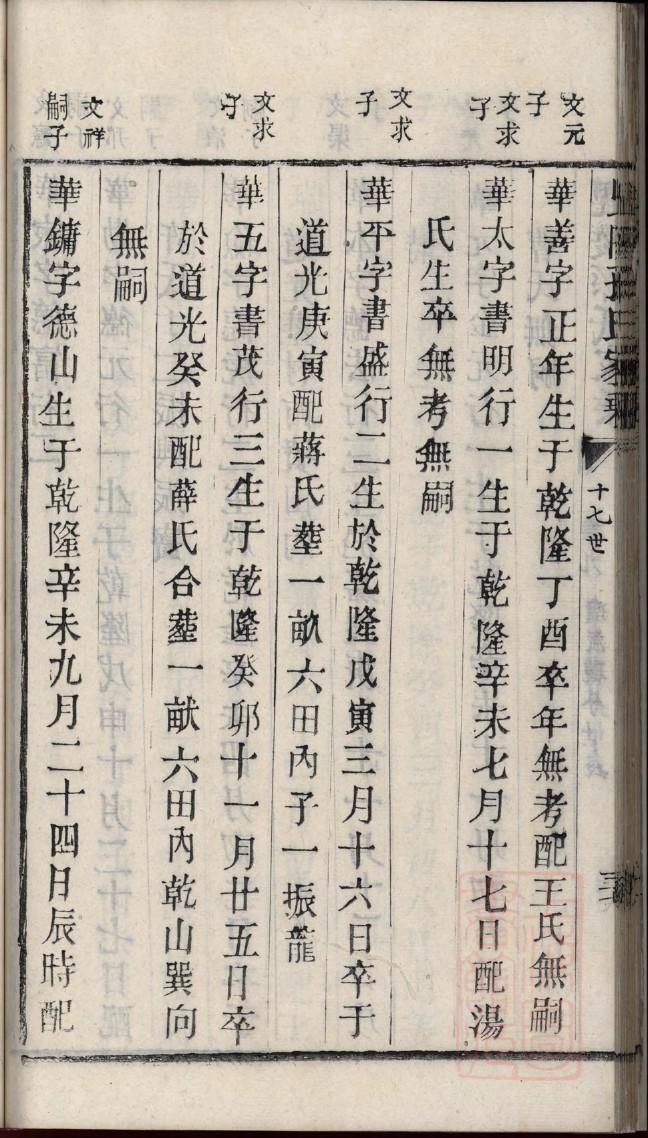 十七世
文元子
華善字正年生于乾隆丁酉卒年無考配王氏無嗣
文求子
華太字書明行一生于乾隆辛未七月十七日配湯
氏生卒無考無嗣
文求子
華平字書盛行二生於乾隆戊寅三月十六日卒于
道光庚寅配蔣氏塟一畝六田內子一振龍
文求子
華五字書茂行三生于乾隆癸卯十一月廿五日卒
於道光癸未配薛氏合塟一畝六田內乾山巽向
無嗣
文祥嗣子
華鏞字德山生于乾隆辛未九月二十四日辰時配